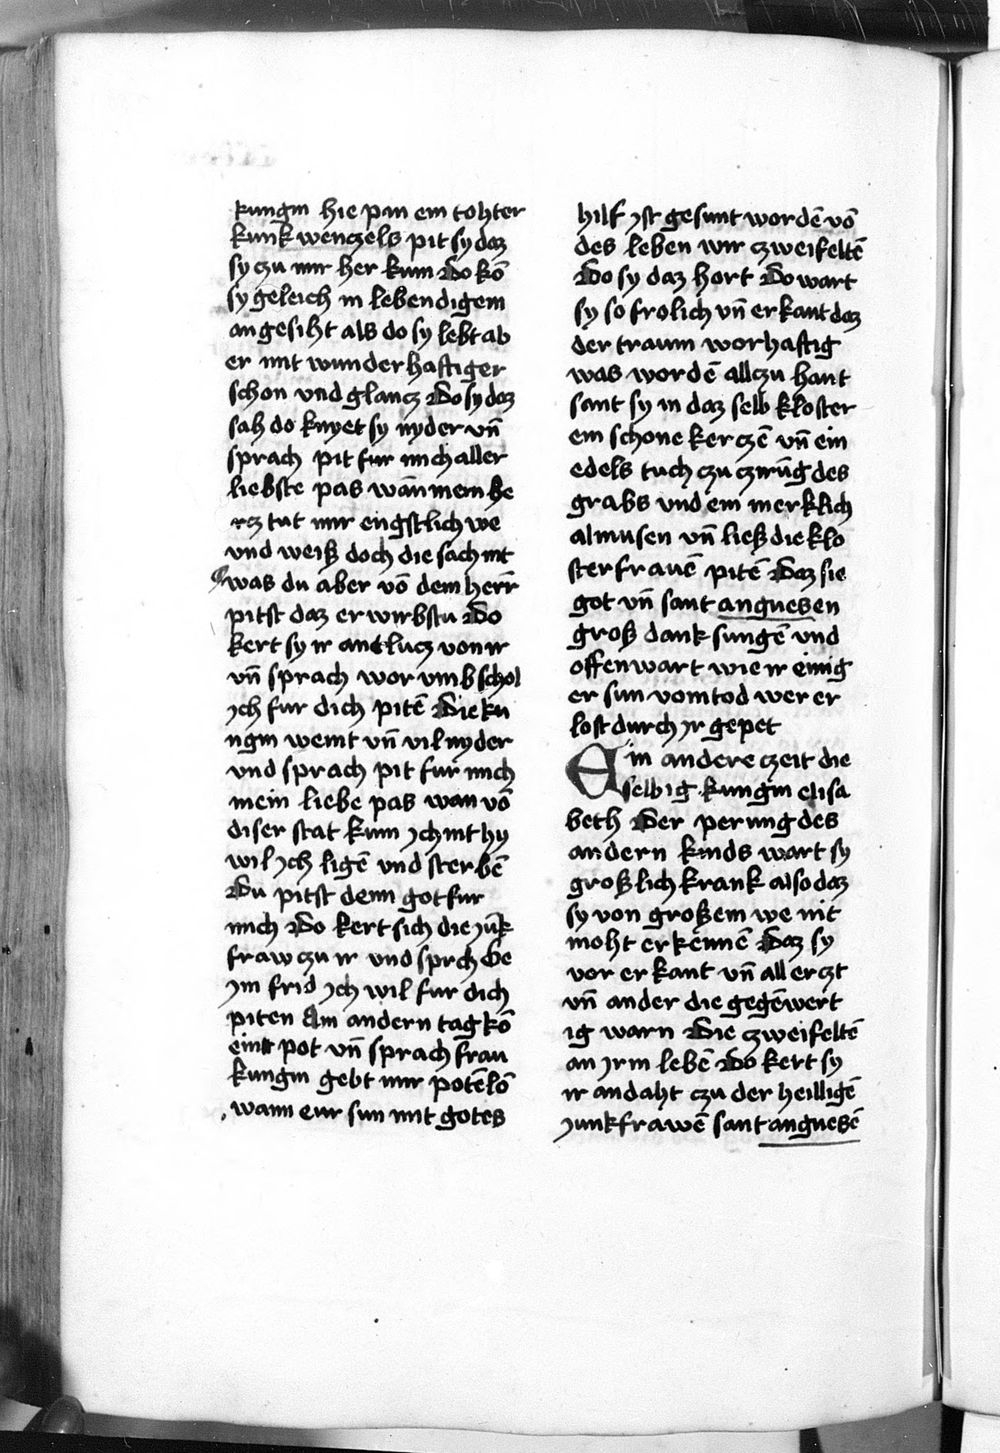 kungin hie pin ein tohter
kunk wenczels pit sy daz
sy czu mir her kum Do kō
sy geleich in lebendigem
angesiht als do sy lebt ab
er mit wunderhaftiger
schon vnd glancz Do sy daz
sah do knyet sy nyder vn̄
sprach pit fur mich aller
liebste pas wān mein he
rcz tut mir engstlich we
vnd weiß doch die sach nit
was du aber vō dem herr̄
pitst daz erwirbstu Do
kert sy ir antlucz von ir
vn̄ sprach wor vmb schol
ich fur dich pitē Die ku
ngin weint vn̄ vil nyder
vnd sprach pit fur mich
mein liebe pas wan vō
diser stat kum ich nit hy
wil ich ligē vnd sterbē
Du pitst denn got fur
mich Do kert sich die iūk
fraw czu ir vnd sprch Ge
im frid ich wil fur dich
piten Am andern tag kō
eint pot vn̄ sprach frau
kungin gebt mir potēlō
wann eur sun mit gotes
hilf ist gesunt wordē vō
des leben wir czweifeltē
Do sy daz hort Do wart
sy so frolich vn̄ erkant daz
der traum worhaftig
was wordē allczu hant
sant sy in daz selb kloster
ein schone kerczē vn̄ ein
edels tuch czu czirūg des
grabs vnd ein merklich
almusen vn̄ ließ die klo
sterfrauē pitē Daz sie
got vn̄ sant angnesen
groß dank sungē vnd
offenwart wie ir einig
er sun vom tod wer er
lost durch ir gepet
Ein andere czeit die
selbig kungin elisa
beth Der perung des
andern kinds wart sy
großlich krank also daz
sy von großem we nit
moht erkennē Daz sy
vor erkant vn̄ all erczt
vn̄ ander die gegēwert
ig warn Die czweifeltē
an irm lebē Do kert sy
ir andaht czu der heilligē
iunkfrawē sant angnesē